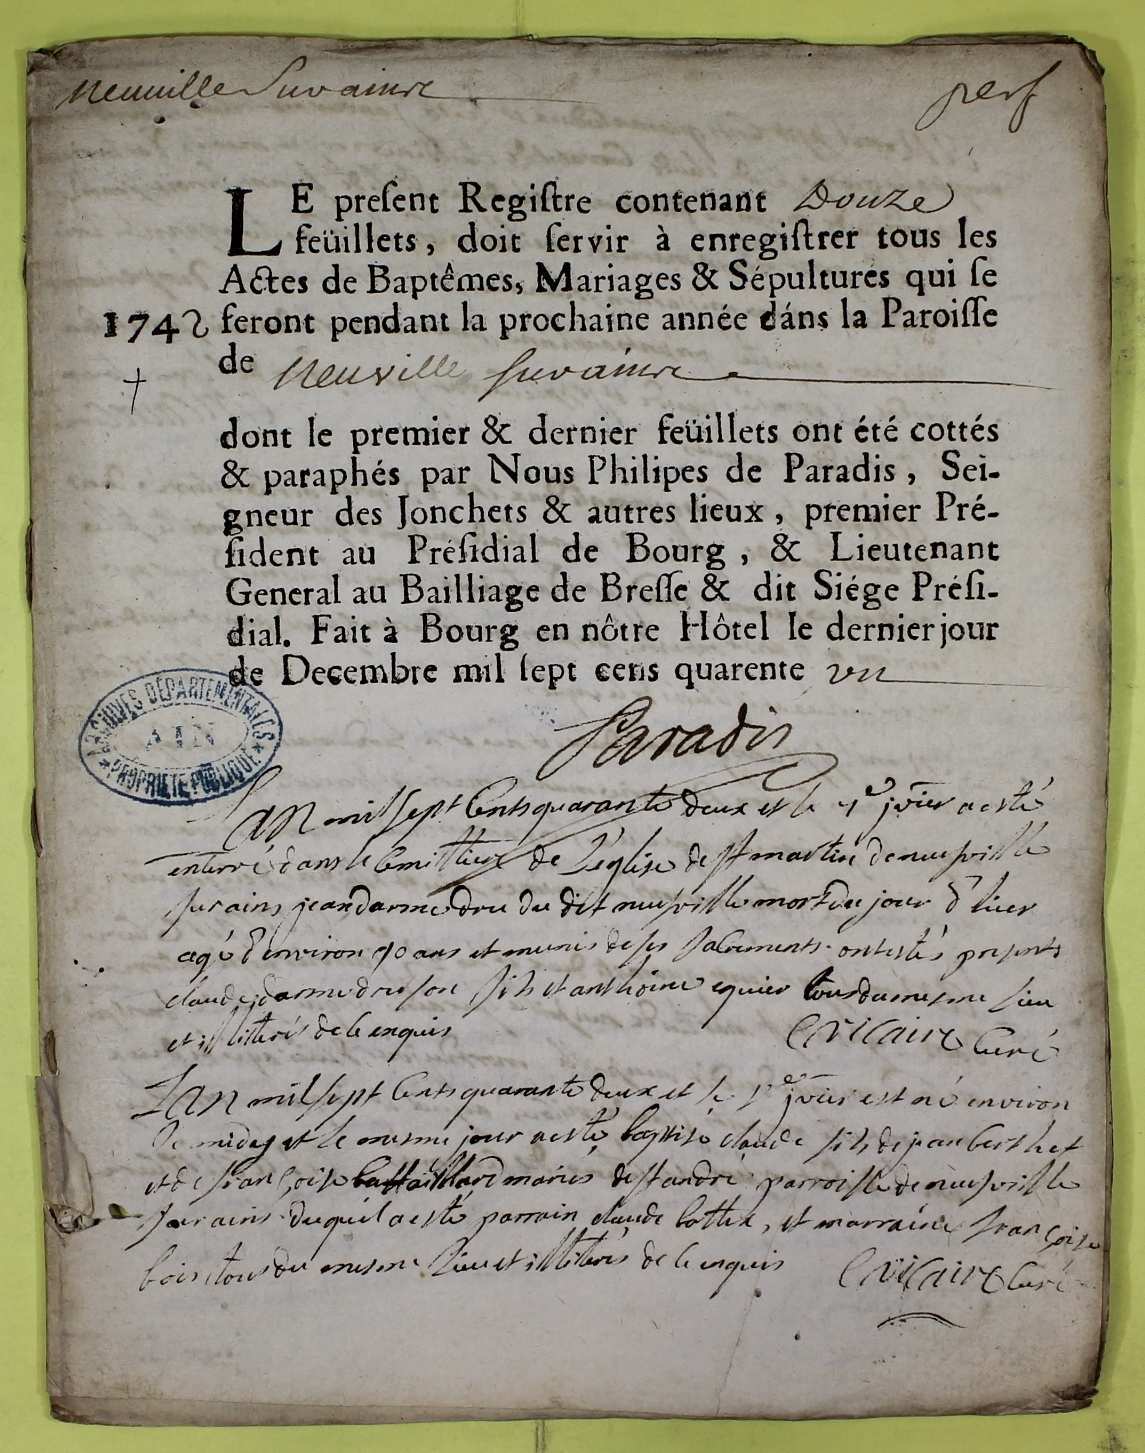 Neuuille Suraince
perf
LE preſent Regiſtre contenant Douze
feüillets, doit ſervir à enregiſtrer tous les
Actes de Baptêmes, Mariages & Sépultures qui ſe
1742 feront pendant la prochaine année dáns la Paroiſſe
de Neuville suraince
dont le premier & dernier feüillets ont été cottés
& paraphés par Nous Philipes de Paradis, Sei-
gneur des Jonchets & autres lieux, premier Pré-
ſident au Préſidial de Bourg, & Lieutenant
General au Bailliage de Breſſe & dit Siége Préſi-
dial. Fait à Bourg en nôtre Hôtel le dernier jour
de Decembre mil ſept cens quarente un
Paradis
ARCHIVES DÉPARTEMENTALES
AIN
PROPRIÉTÉ PUBLIQUE
Lan mil sept Cents quarante deux et le 1er jvier a esté
enterré dans le Cimettiere de Léglise de st martin de neufville
sur ains jean darmedru du dit neufville mort du jour d'hier
agé d'environ 70 ans et munis de ses sacrements. ont estés presents
claude darmedru son fils et anthoine equier tous du mesme lieu
et illiterés de ce enquis
C vicaire Curé
Lan mil sept Cents quarante deux et le 1er jvier est né environ
le midy et le mesme jour a esté baptisé claude fils de jean berthet
et de françoise battaillard mariés de st andré parroisse de neufville
sur ains duquel a esté parrain claude bottex, et marraine françoise
bois, tous du mesme lieu et illiterés de ce enquis C vicaire Curé